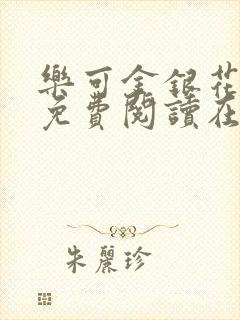 樂可金銀花
免費閱讀在
朱麗珍